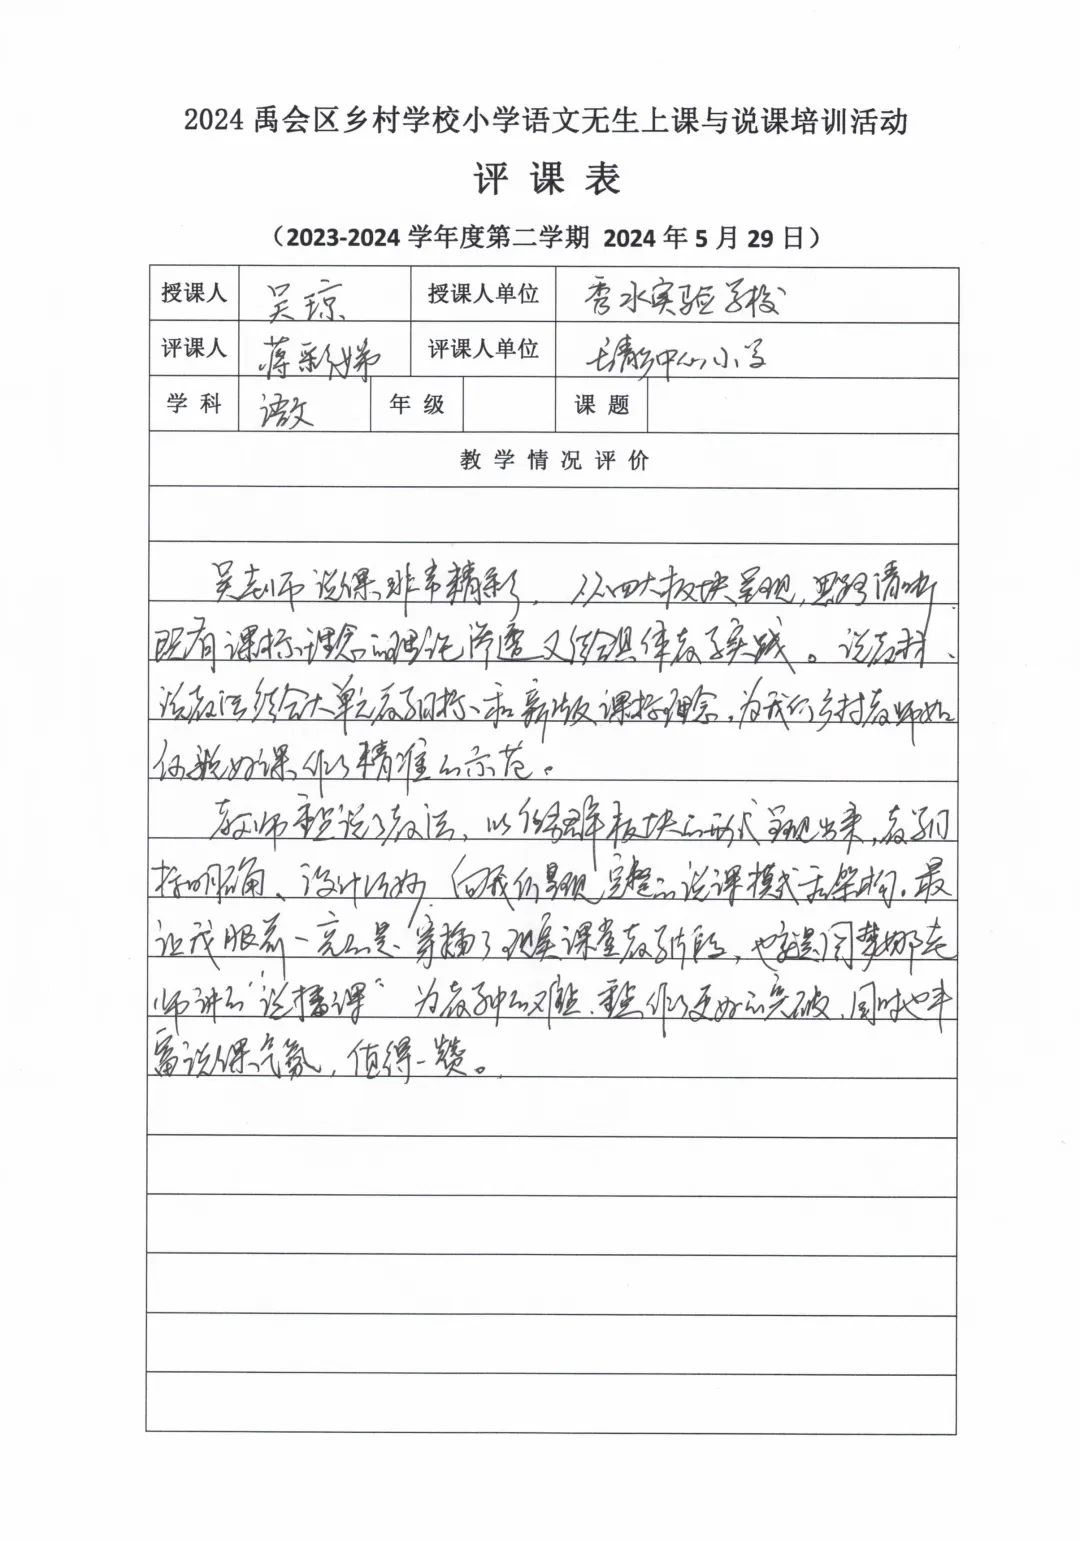 2024 禹会区乡村学校小学语文无生上课与说课培训活动
评 课 表
（2023-2024 学年度第二学期 2024 年 5 月 29 日）
授课人 吴琼 授课人单位 秀水实验学校
评课人 蒋彩娣 评课人单位 长青乡中心小学
学 科 语文 年 级 课 题
教 学 情 况 评 价
吴老师说课非常精彩，以四大板块呈现，思路清晰，
既有课标理念的理论渗透又结合具体教学实践。说教材、
说教法结合大单元教学目标和新版课标理念，为我们乡村教师如
何说好课作了精准的示范。
教师重点说了教法，以任务群板块的形式呈现出来，教学目
标明确、设计巧妙，向我们呈现完整的说课模式和架构。最
让我眼前一亮的是穿插了现实课堂教学片段，也就是闫梦娜老
师讲的“说播课” 为教学中的难点、重点作了更好的突破，同时也丰
富说课气氛，值得一赞。